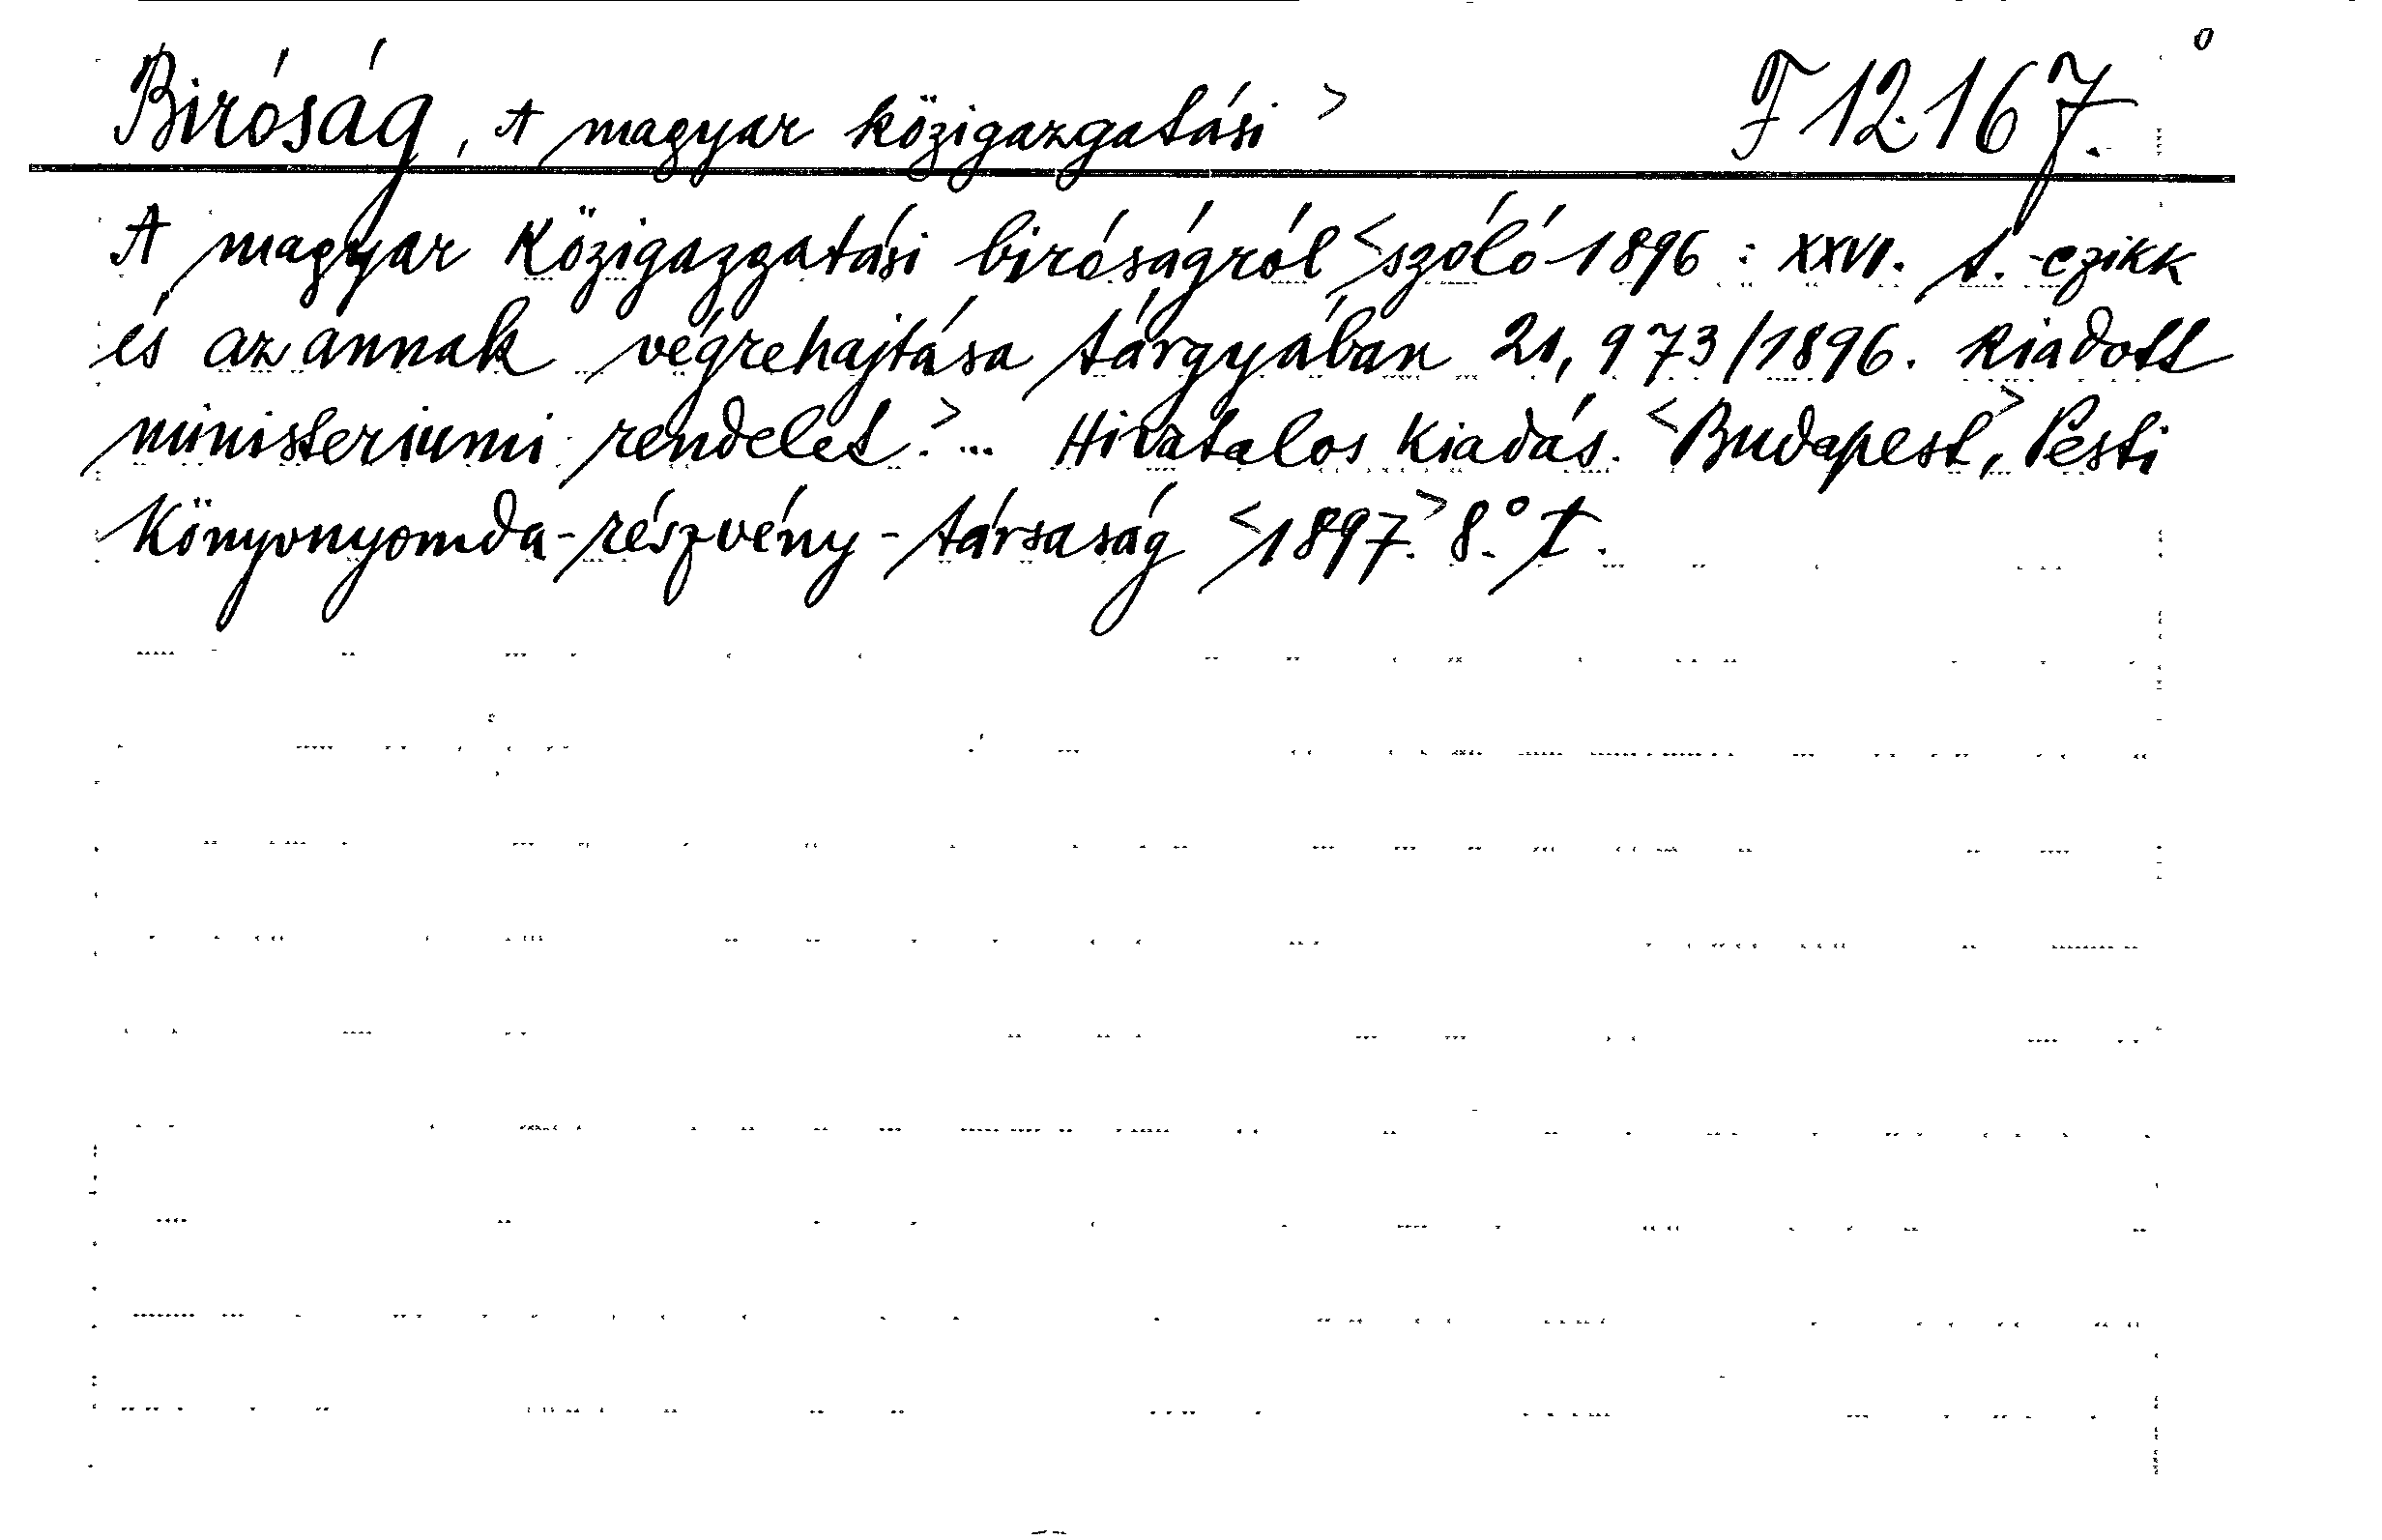 Biróság, A magyar közigazgatási > F 12.167.
A magyar közigazgatási biróságról <szóló 1896 : XXVI. t.-czikk
és az annak végrehajtása tárgyában 21,973/1896. kiadott
ministeriumi rendelet.> ... Hivatalos kiadás. <Budapest,> Pesti
Könyvnyomda-részvény-társaság <1897.> 8.° T.